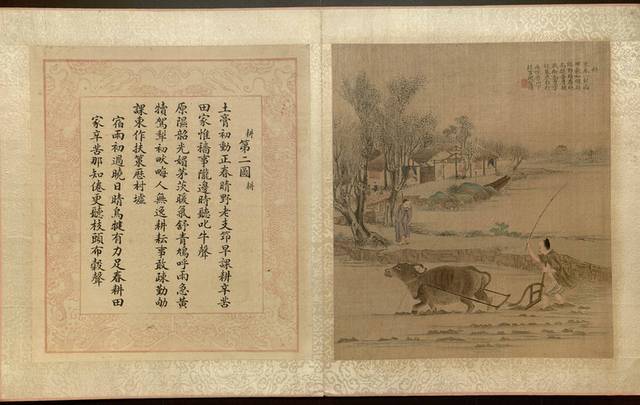 耕第二圖 耕
土膏初動正春晴野老支筇早課耕辛苦
田家惟穡事隴邊時聽叱牛聲
原隰韶光媚茅茨暖氣舒青鳩呼雨急黃
犢駕犂初畎畮人無逸耕耘事敢疎勤劬
課東作扶策厯村墟
宿雨初過曉日晴烏犍有力足春耕田
家辛苦那知倦更聽枝頭布穀聲
耕